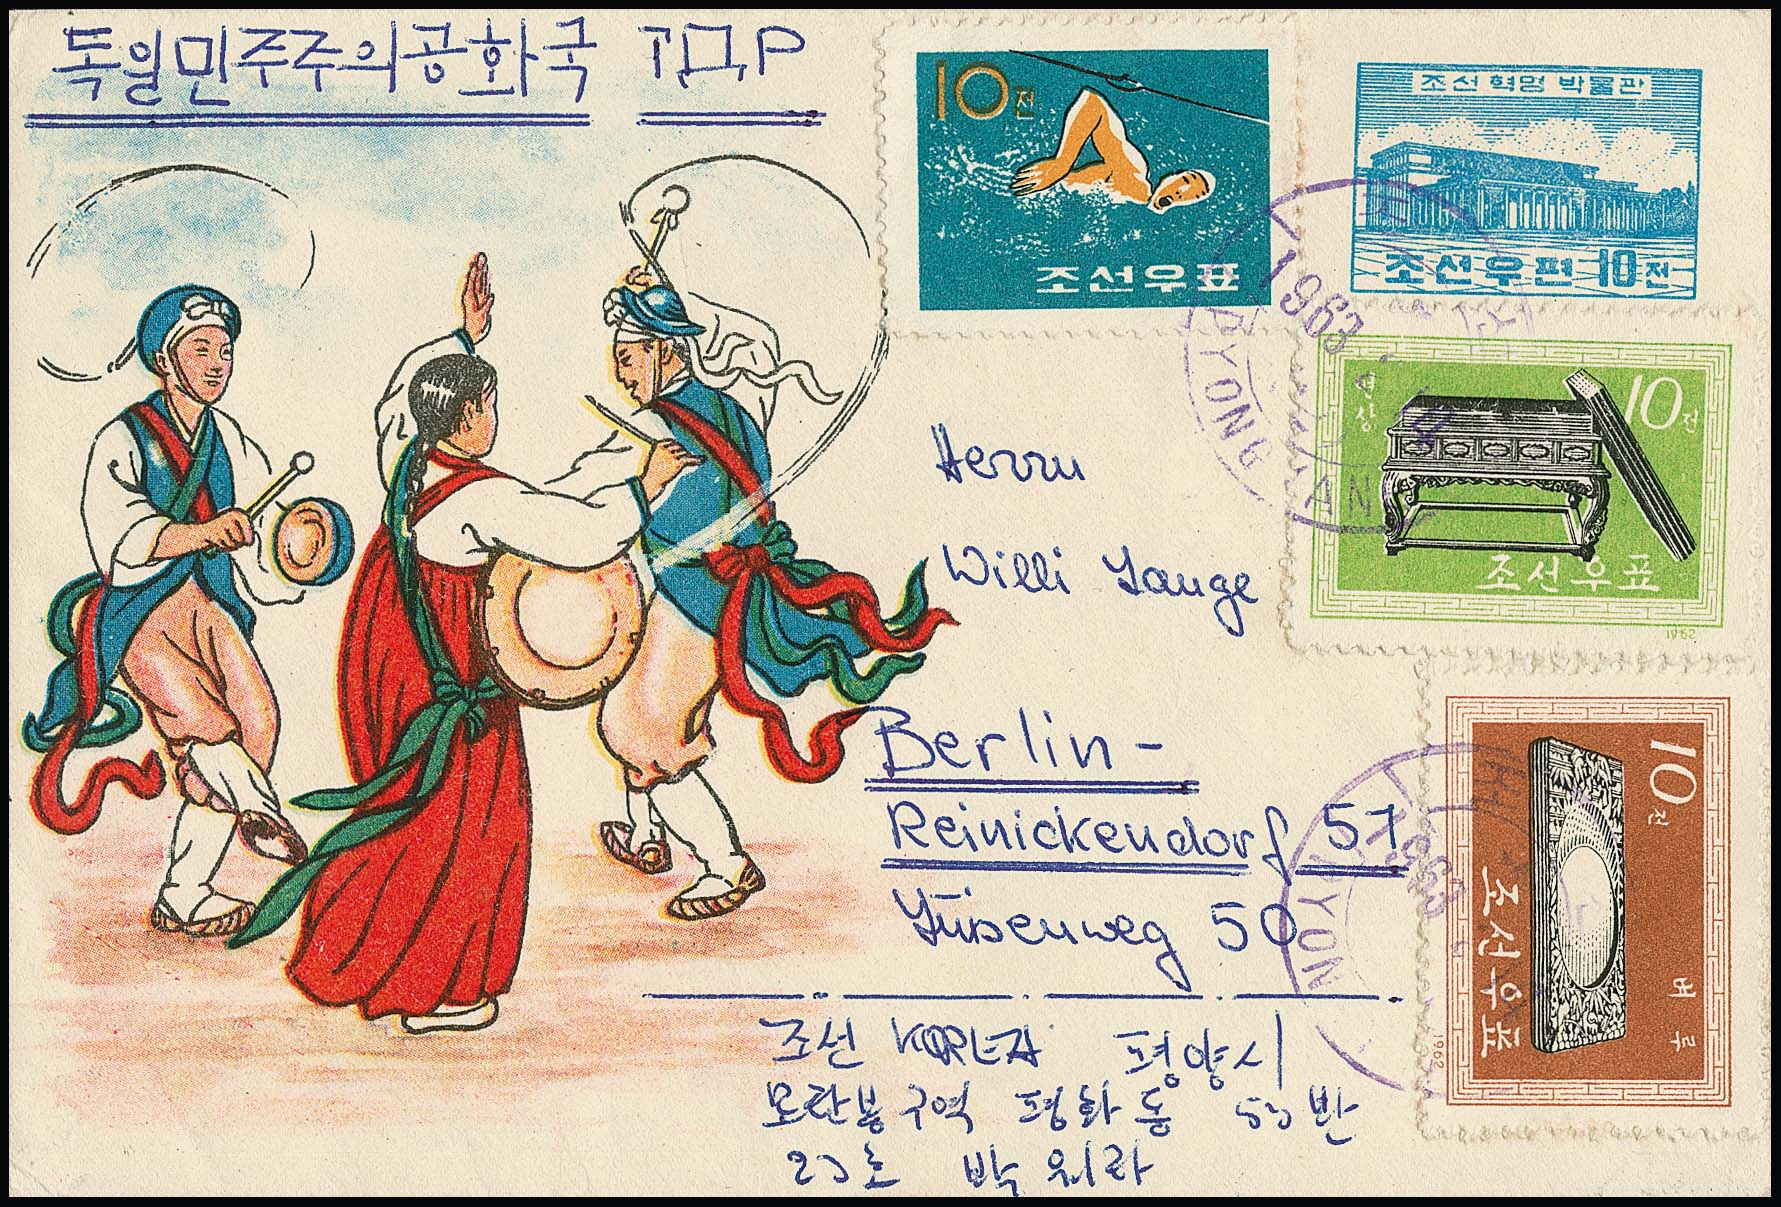 독일민주주의공화국 ГДР
10전
조선우표
조선 혁명 박물관
조선우편 10전
연상
10전
조선우표
1962
PYONGYANG
1963
Herrn
Willi Lange
Berlin-
Reinickendorf 51
50
10전
벼루
조선우표
1962
PYONG
1963
조선 KOREA 평양시
모란봉구역 평화동 53반
23호 박